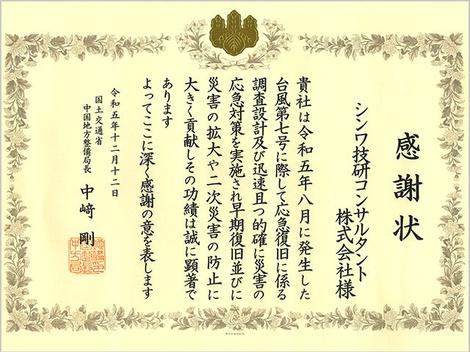 感謝状
シンワ技研コンサルタント
株式会社様
貴社は令和五年八月に発生した
台風第七号に際して応急復旧に係る
調査設計及び迅速且つ的確に災害の
応急対策を実施され早期復旧並びに
災害の拡大や二次災害の防止に
大きく貢献しその功績は誠に顕著で
あります
よってここに深く感謝の意を表します
令和五年十二月十二日
国土交通省
中国地方整備局長
中﨑 剛